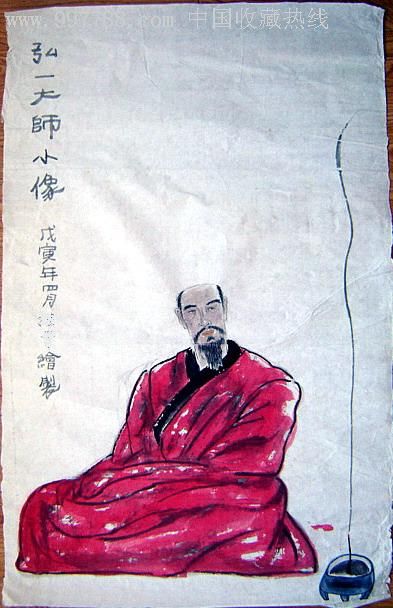 www.997788.com 中国收藏热线
弘一大師小像
戊寅年四月 繪製